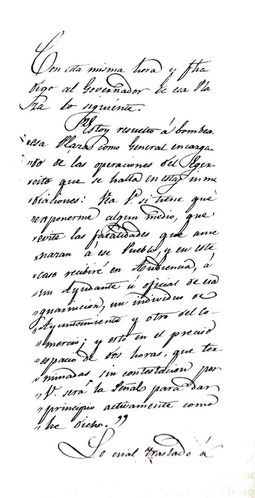 Con esta misma hora y fha
digo al Governador de esa Pla
za lo siguiente.
"Estoy resuelto á bombear
"esa Plaza como General encarga
"do de las operaciones del Eger
"cito que se halla en estas inme
"diaciones: Si V. S. tiene que
"exponerme algun medio, que
"evite las fatalidades que ame
"nazan á ese Pueblo, y en este
"caso recibiré en Audiencia, á
"un Ayudante ú oficial de esa
"guarnicion, un individuo de
"Ayuntamiento y otro del Co
"mercio; y esto en el preciso
"espacio de dos horas, que ter
"minadas sin contestacion por
"V. será la señal para dar
"principio activamente como
"he dicho."
Lo cual traslado á